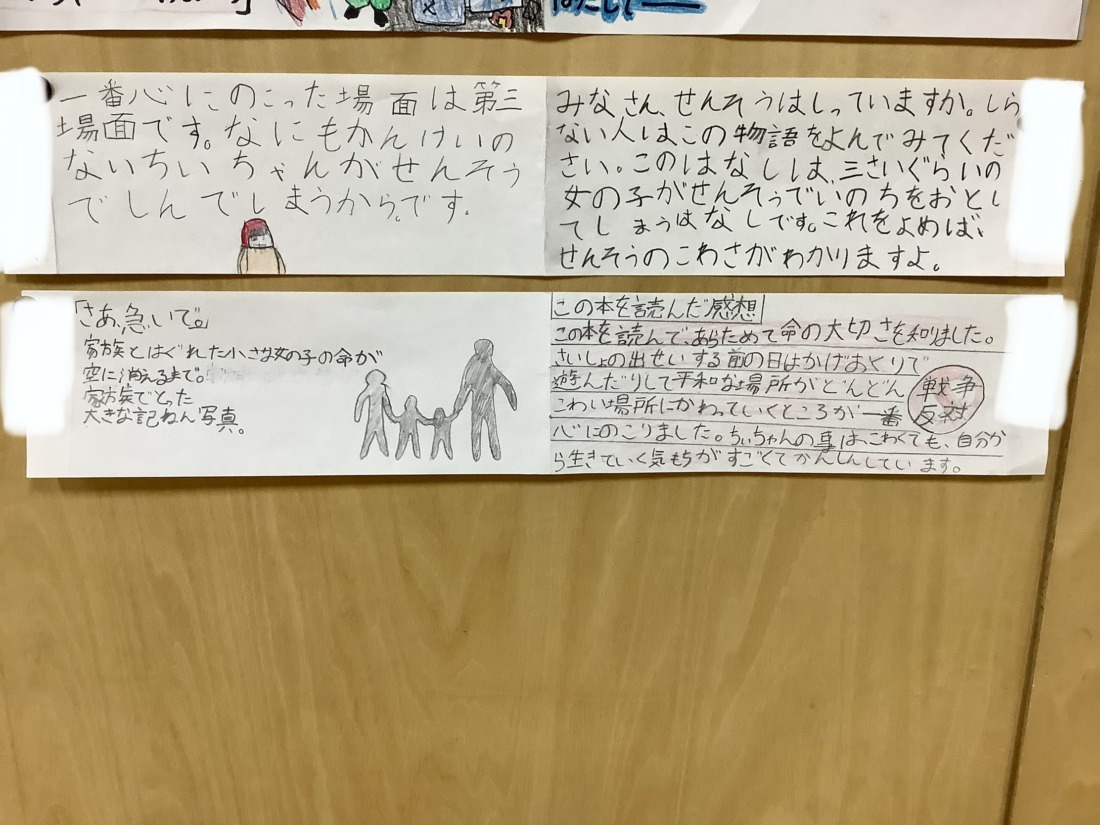 一番心にのこった場面は第三
場面です。なにもかんけいの
ないちいちゃんがせんそう
でしんでしまうから。です。
みなさん、せんそうはしっていますか。しら
ない人はこの物語をよんでみてくだ
さい。このはなしは、三さいぐらいの
女の子がせんそうでいのちをおとし
てしまうはなしです。これをよめば、
せんそうのこわさがわかりますよ。
「さあ、急いで。」
家族とはぐれた小さな女の子の命が
空に消えるまで。
家族でとった
大きな記ねん写真。
この本を読んだ感想
この本を読んで、あらためて命の大切さを知りました。
さいしょの出せいする前の日はかげおくりで
遊んだりして平和な場所がどんどん
こわい場所にかわっていくところが一番
心にのこりました。ちぃちゃんの事は、こわくても、自分か
ら生きていく気もちがすごくてかんしんしています。
戦争
反対